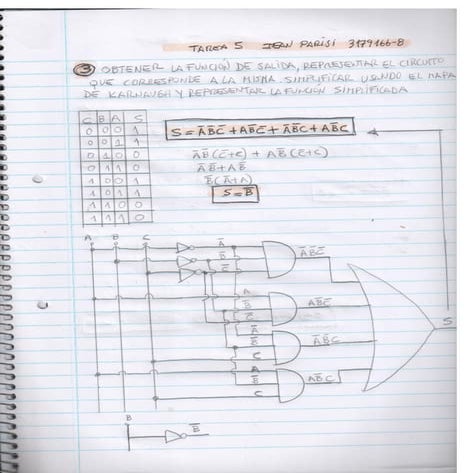 TAREA 5 JEAN PARISI 3179166-8
3 OBTENER LA FUNCIÓN DE SALIDA, REPRESENTAR EL CIRCUITO
QUE CORRESPONDE A LA MISMA. SIMPLIFICAR USANDO EL MAPA
DE KARNAUGH Y REPRESENTAR LA FUNCIÓN SIMPLIFICADA
C B A S
0 0 0 1
0 0 1 1
0 1 0 0
0 1 1 0
1 0 0 1
1 0 1 1
1 1 0 0
1 1 1 0
S = A̅B̅C̅ + AB̅C̅ + A̅B̅C + AB̅C
A̅B̅(C̅+C) + AB̅(C̅+C)
A̅B̅+AB̅
B̅(A̅+A)
S=B̅
A B C
A̅
B̅
C̅
A̅B̅C̅
A
B̅
C̅
AB̅C̅
A̅
B̅
C
A̅B̅C
A
B̅
C
AB̅C
S
B
B̅